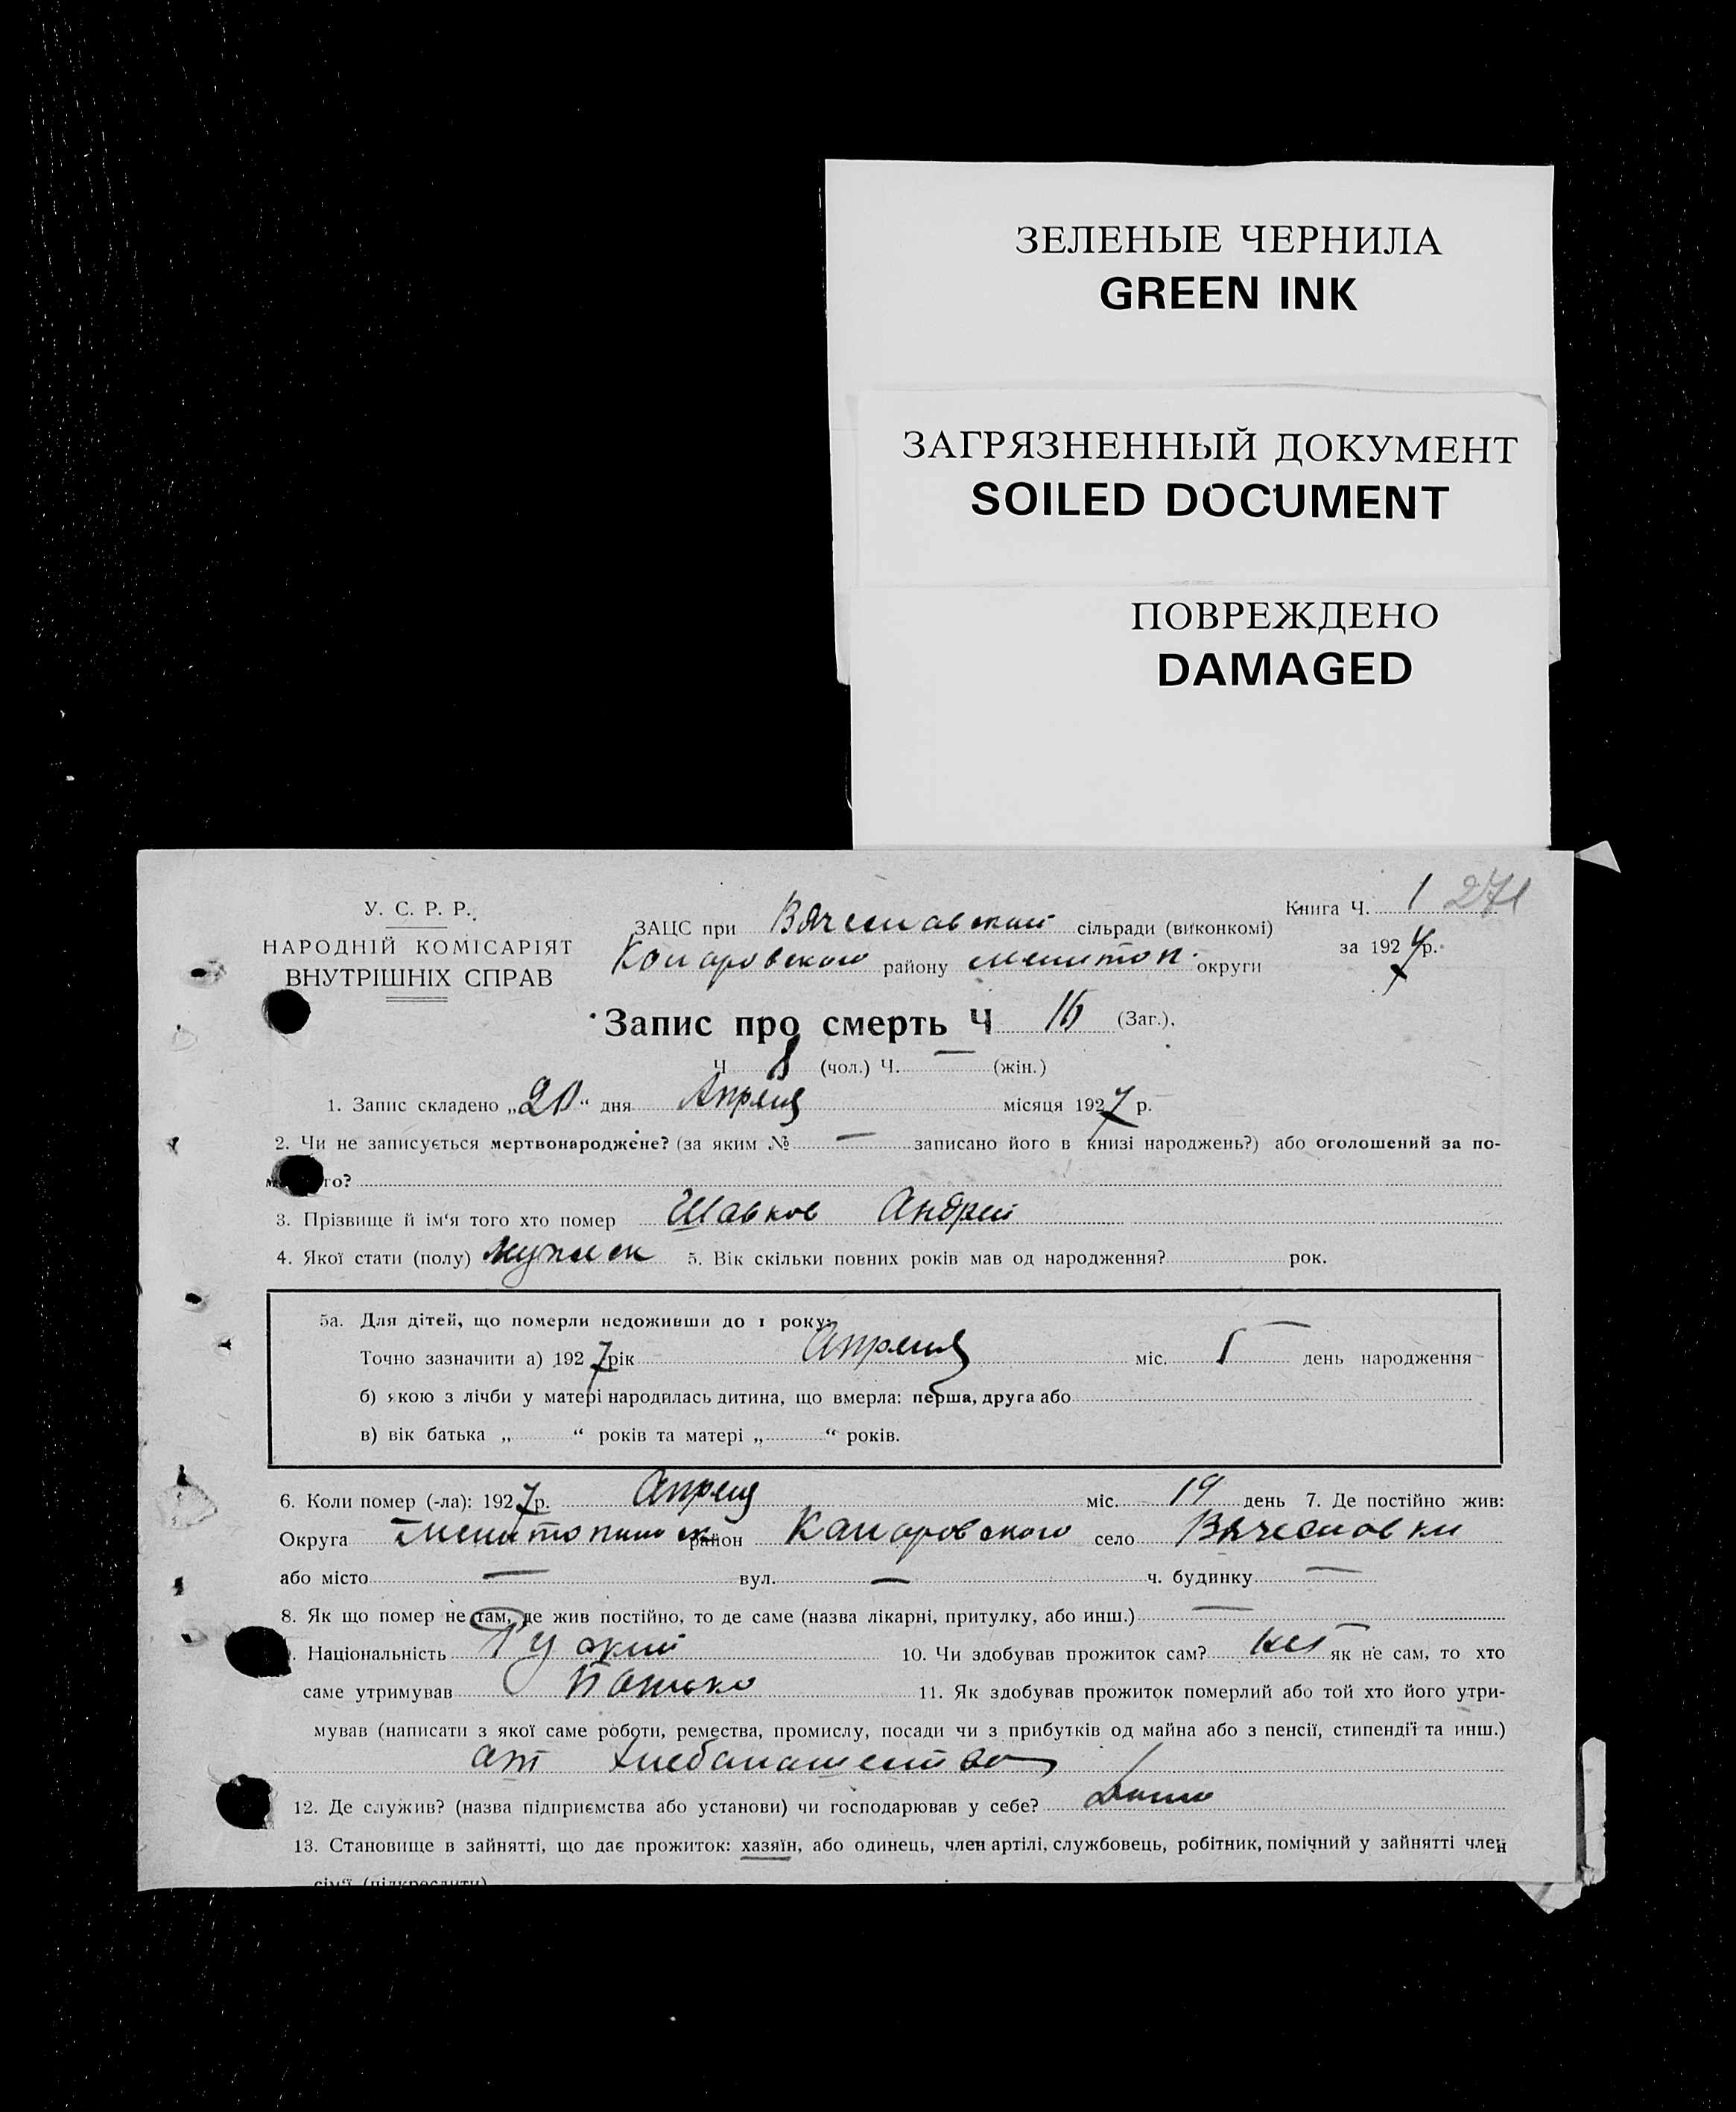 ЗЕЛЕНЫЕ ЧЕРНИЛА
GREEN INK
ЗАГРЯЗНЕННЫЙ ДОКУМЕНТ
SOILED DOCUMENT
ПОВРЕЖДЕНО
DAMAGED
У. С. Р. Р.
НАРОДНІЙ КОМІСАРІЯТ
ВНУТРІШНІХ СПРАВ
Книга Ч. 1 271
ЗАЦС при сільради (виконкомі)
за 1927 р.
району округи
Запис про смерть Ч (Заг.).
Ч 8 (чол.) Ч. — (жін.)
1. Запис складено „20“ дня Апреля місяця 1927 р.
2. Чи не записується мертвонароджене? (за яким № — записано його в книзі народжень?) або оголошений за по-
го?
3. Прізвище й ім‘я того хто помер Шавков Андрей
4. Якої стати (полу) 5. Вік скільки повних років мав од народження? рок.
5а. Для дітей, що померли недоживши до 1 року:
Точно зазначити а) 1927 рік Апреля міс. день народження
б) якою з лічби у матері народилась дитина, що вмерла: перша, друга або
в) вік батька „ “ років та матері „ “ років.
6. Коли помер (-ла): 1927 р. Апреля міс. 19 день 7. Де постійно жив:
Округа район село
або місто — вул. — ч. будинку —
8. Як що помер не там, де жив постійно, то де саме (назва лікарні, притулку, або инш.) —
Національність Руский 10. Чи здобував прожиток сам? нет як не сам, то хто
саме утримував Батько 11. Як здобував прожиток померлий або той хто його утри-
мував (написати з якої саме роботи, ремества, промислу, посади чи з прибутків од майна або з пенсії, стипендії та инш.)
от хлебопашества
12. Де служив? (назва підприємства або установи) чи господарював у себе?
13. Становище в зайнятті, що дає прожиток: хазяїн, або одинець, член артілі, службовець, робітник, помічний у зайнятті член
сім‘ї (підкреслити)